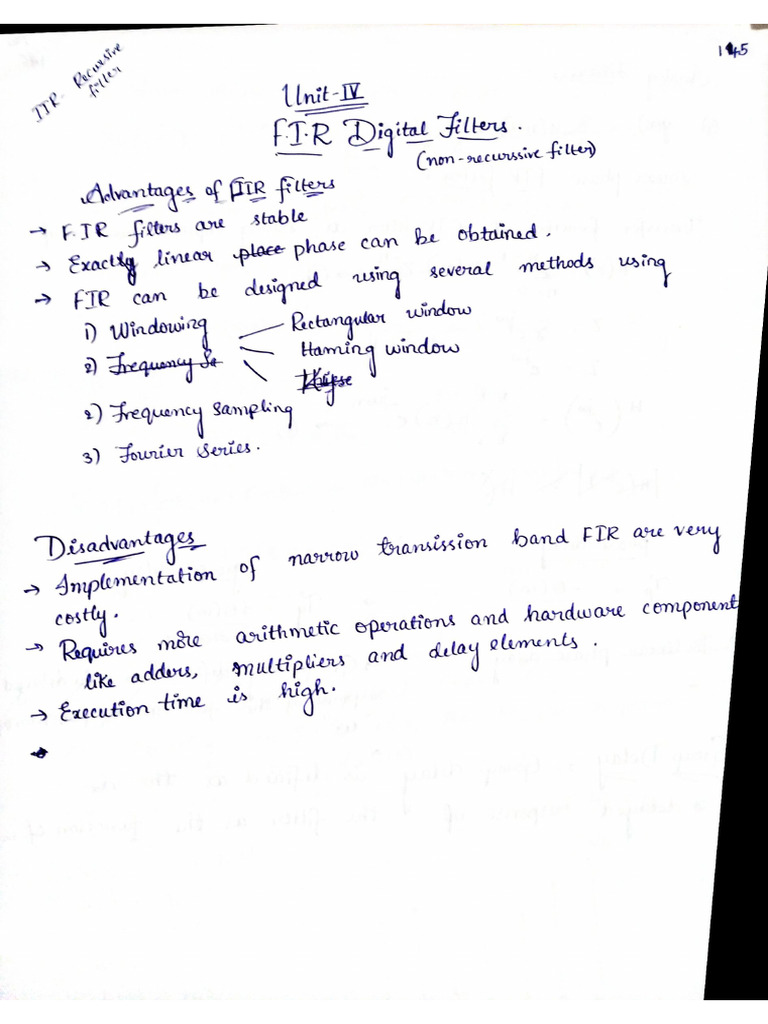 IIR - Recursive
filter
145
Unit-IV
F.I.R Digital Filters.
(non-recurssive filter)
Advantages of FIR filters
→ F.IR filters are stable
→ Exactly linear place phase can be obtained.
→ FIR can be designed using several methods using
1) Windowing
Rectangular window
2) Frequency Sa
Haming window
2) Frequency sampling
3) Fourier series.
Disadvantages
→ Implementation of narrow transission band FIR are very
costly.
→ Requires more arithmetic operations and hardware component
like adders, multipliers and delay elements.
→ Execution time is high.
→